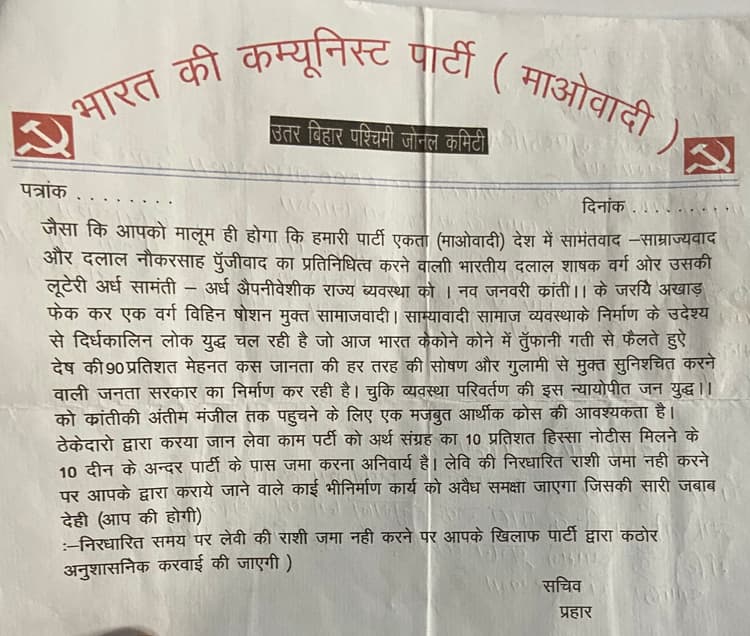 भारत की कम्यूनिस्ट पार्टी ( माओवादी )
उतर बिहार पश्चिमी जोनल कमिटी
पत्रांक . . . . . . . .
दिनांक . . . . . . . . .
जैसा कि आपको मालूम ही होगा कि हमारी पार्टी एकता (माओवादी) देश में सामंतवाद –साम्राज्यवाद
और दलाल नौकरसाह पुँजीवाद का प्रतिनिधित्व करने वालाी भारतीय दलाल शाषक वर्ग ओर उसकी
लूटेरी अर्ध सामंती – अर्ध औपनीवेशीक राज्य ब्यवस्था को । नव जनवरी क्रांती।। के जरिये अखाड़
फेक कर एक वर्ग विहिन षोशन मुक्त सामाजवादी। साम्यावादी सामाज व्यवस्थाके निर्माण के उदेश्य
से दिर्धकालिन लोक युद्ध चल रही है जो आज भारत केकोने कोने में तुँफानी गती से फैलते हुऐ
देष की 90 प्रतिशत मेहनत कस जानता की हर तरह की सोषण और गुलामी से मुक्त सुनिश्चित करने
वाली जनता सरकार का निर्माण कर रही है। चुकि व्यवस्था परिवर्तण की इस न्यायोपीत जन युद्ध।।
को क्रांतीकी अंतीम मंजील तक पहुचने के लिए एक मजबुत आर्थीक कोस की आवश्यकता है।
ठेकेदारो द्वारा करया जान लेवा काम पर्टी को अर्थ संग्रह का 10 प्रतिशत हिस्सा नोटीस मिलने के
10 दीन के अन्दर पार्टी के पास जमा करना अनिवार्य है। लेवि की निरधारित राशी जमा नही करने
पर आपके द्वारा कराये जाने वाले काई भीनिर्माण कार्य को अवैध समक्षा जाएगा जिसकी सारी जबाब
देही (आप की होगी)
:–निरधारित समय पर लेवी की राशी जमा नही करने पर आपके खिलाफ पार्टी द्वारा कठोर
अनुशासनिक करवाई की जाएगी )
सचिव
प्रहार